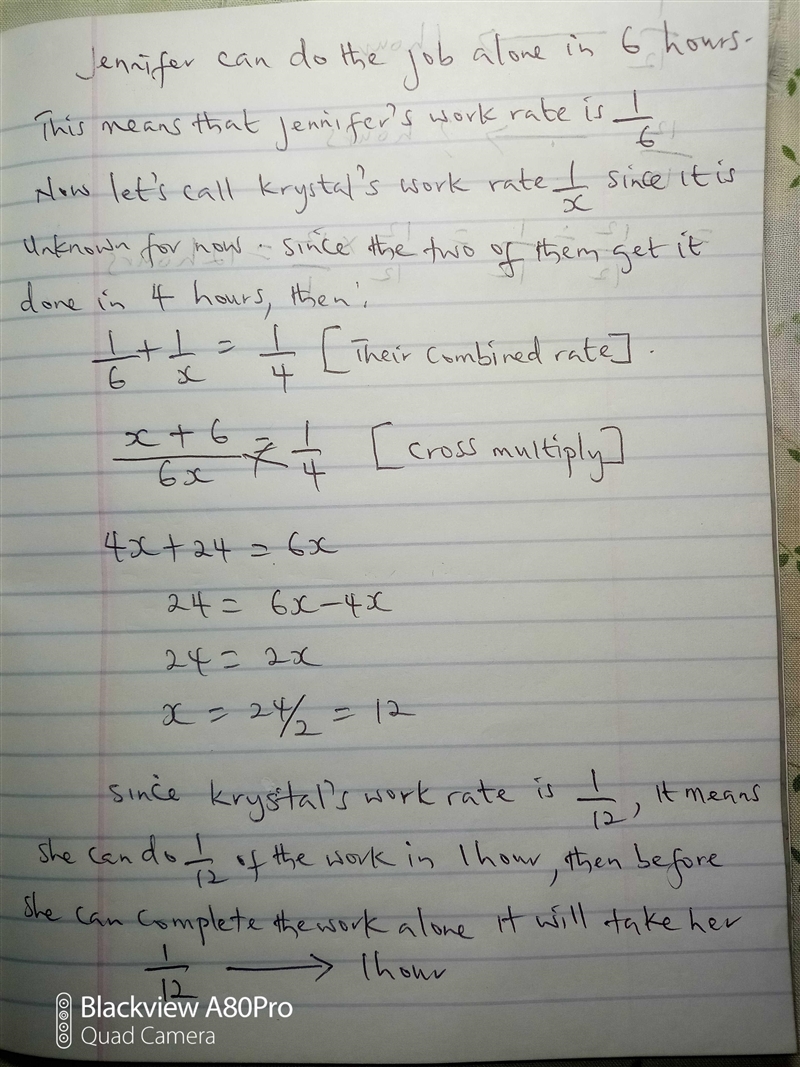 Jennifer can do the job alone in 6 hours.
This means that Jennifer's work rate is 1/6
Now let's call Krystal's work rate 1/x since it is
unknown for now. since the two of them get it
done in 4 hours, then:
1/6 + 1/x = 1/4 [Their combined rate].
x + 6/6x = 1/4 [cross multiply]
4x + 24 = 6x
24 = 6x - 4x
24 = 2x
x = 24/2 = 12
since Krystal's work rate is 1/12, it means
she can do 1/12 of the work in 1 hour, then before
she can complete the work alone it will take her
1/12 → 1 hour
Blackview A80Pro
Quad Camera